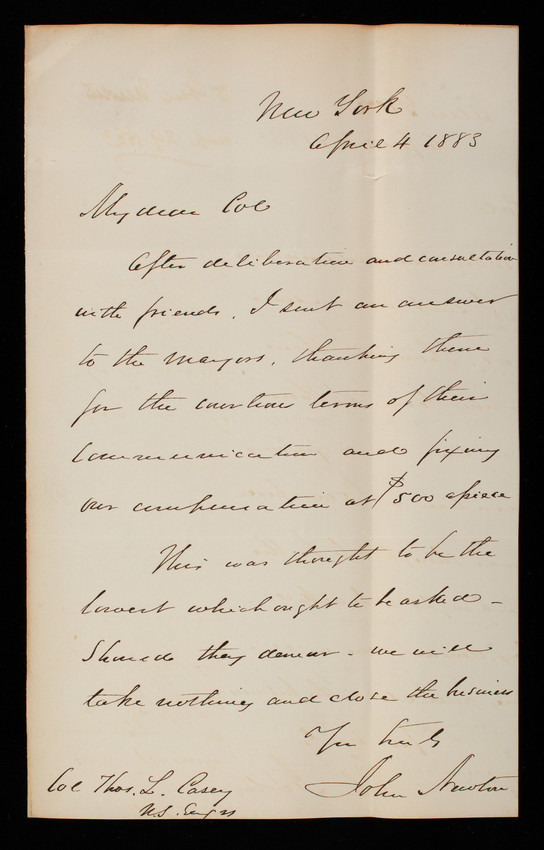 New York
April 4 1883
My dear Col
After deliberation and consultation
with friends, I sent an answer
to the Mayors, thanking them
for the courteous terms of their
communication and fixing
our compensation at $500 apiece
This was thought to be the
lowest which ought to be asked -
Should they demur - we will
take nothing and close the business
Yrs truly
John Newton
Col Thos. L. Casey
U.S. Engrs